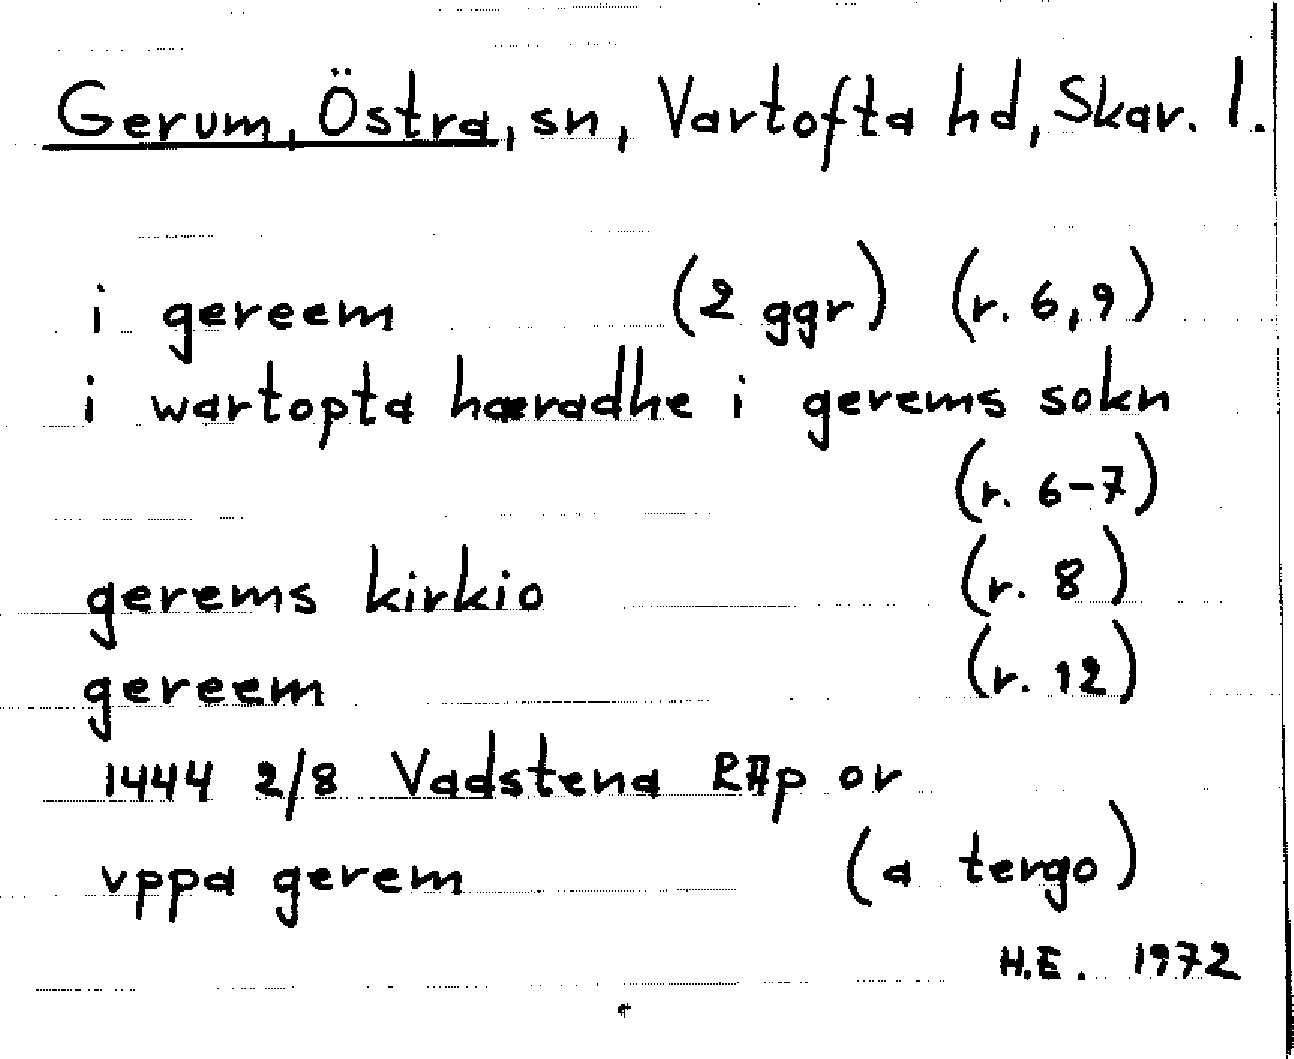 Gerum, Östra, sn, Vartofta hd, Skar. l.
i gereem (2 ggr) (r. 6, 9)
i wartopta hæradhe i gerems sokn
(r. 6-7)
gerems kirkio (r. 8)
gereem (r. 12)
1444 2/8 Vadstena RAp or
vppa gerem (a tergo)
H.E. 1972